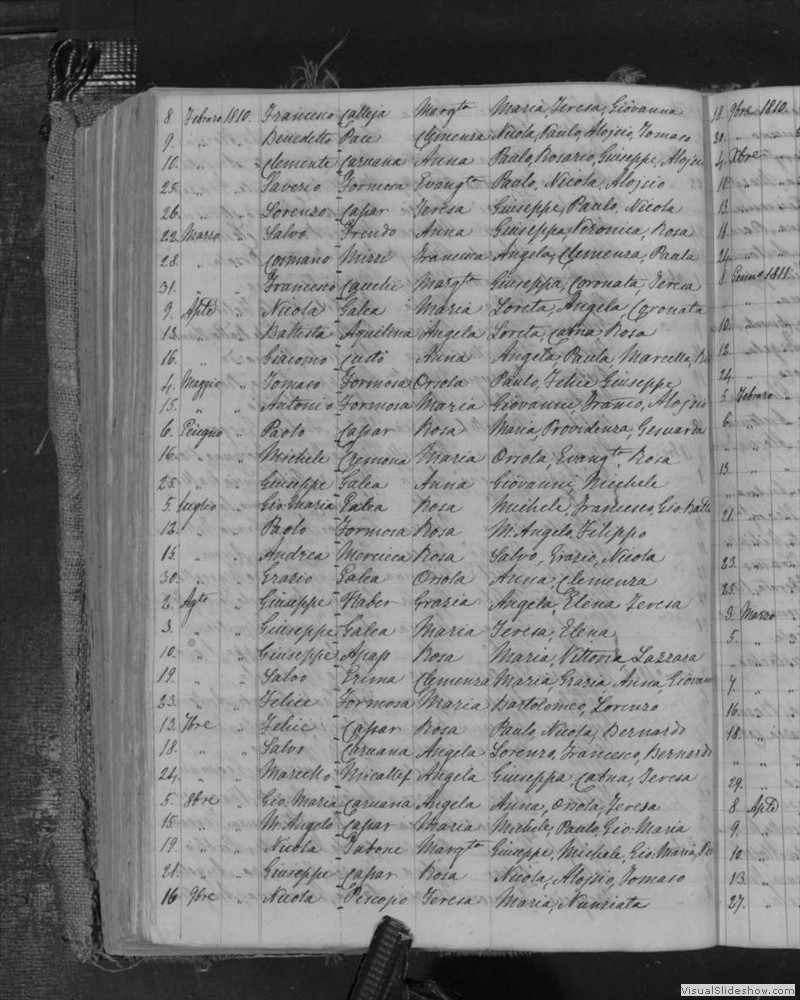 8 Febraro 1810 Francesco Calleja Margta Maria, Teresa, Giovanna
9. " " Benedetto Pace Clemenza Nicola, Paulo, Alojsio, Tomaso
10. " " Clemente Caruana Anna Paulo, Rosario, Giuseppe, Alojsio
25. " " Saverio Formosa Evangta Paolo, Nicola, Alojsio
26. " " Lorenzo Caspar Teresa Giuseppe, Paulo, Nicola
22. Marzo " Salvo Frendo Anna Giuseppa, Veronica, Rosa
28. " " Cosmano Mizzi Francesca Angela, Clemenza, Paula
31. " " Francesco Cauchi Margta Giuseppa, Coronata, Teresa
9. Aple " Nicola Galea Maria Loreta, Angela, Coronata
13. " " Battista Aquilina Angela Loreta, Catna, Rosa
16. " " Giacomo Custò Anna Angela, Paula, Marcella
4. Maggio " Tomaso Formosa Orsola Paulo, Felice, Giuseppe
15. " " Antonio Formosa Maria Giovanni, Franco, Alojsio
6. Giugno " Paolo Caspar Rosa Maria, Providenza, Gesuarda
16. " " Michele Cremona Maria Orsola, Evangta, Rosa
25. " " Giuseppe Galea Anna Giovanni, Michele
5. Luglio " Gio: Maria Galea Rosa Michele, Francesco, Gio: Batta
12. " " Paolo Formosa Rosa M. Angelo, Filippo
15. " " Andrea Mercieca Rosa Salvo, Grazio, Nicola
30. " " Grazio Galea Orsola Anna, Clemenza
2. Agto " Giuseppe Staber Grazia Angela, Elena, Teresa
3. " " Giuseppe Galea Maria Teresa, Elena
10. " " Giuseppe Rosa Maria, Vittoria, Lazzara
19. " " Salvo Clemenza Maria, Grazia, Anna, Giovanna
23. " " Felice Formosa Maria Bartolomeo, Lorenzo
13. 7bre " Felice Caspar Rosa Paulo, Nicola, Bernardo
18. " " Salvo Caruana Angela Lorenzo, Francesco, Bernardo
24. " " Marcello Micallef Angela Giuseppa, Catna, Teresa
5. 8bre " Gio: Maria Caruana Angela Anna, Orsola, Teresa
15. " " M. Angelo Caspar Maria Michele, Paulo, Gio: Maria
19. " " Nicola Tabone Margta Giuseppe, Michele, Gio: Maria
21. " " Giuseppe Caspar Rosa Nicola, Alojsio, Tomaso
16 9bre " Nicola Piscopo Teresa Maria, Nunziata
18. 9bre 1810.
30. "
4. Xbre
10. "
13. "
18. "
24. "
8. Genno 1811.
"
10. "
12. "
24. "
5. Febraro "
6. "
"
13. "
"
21. "
"
23. "
25. "
3. Marzo
5. "
"
7. "
16. "
18. "
"
29. "
8. Aple
9. "
10. "
13. "
27. "
VisualSlideshow.com